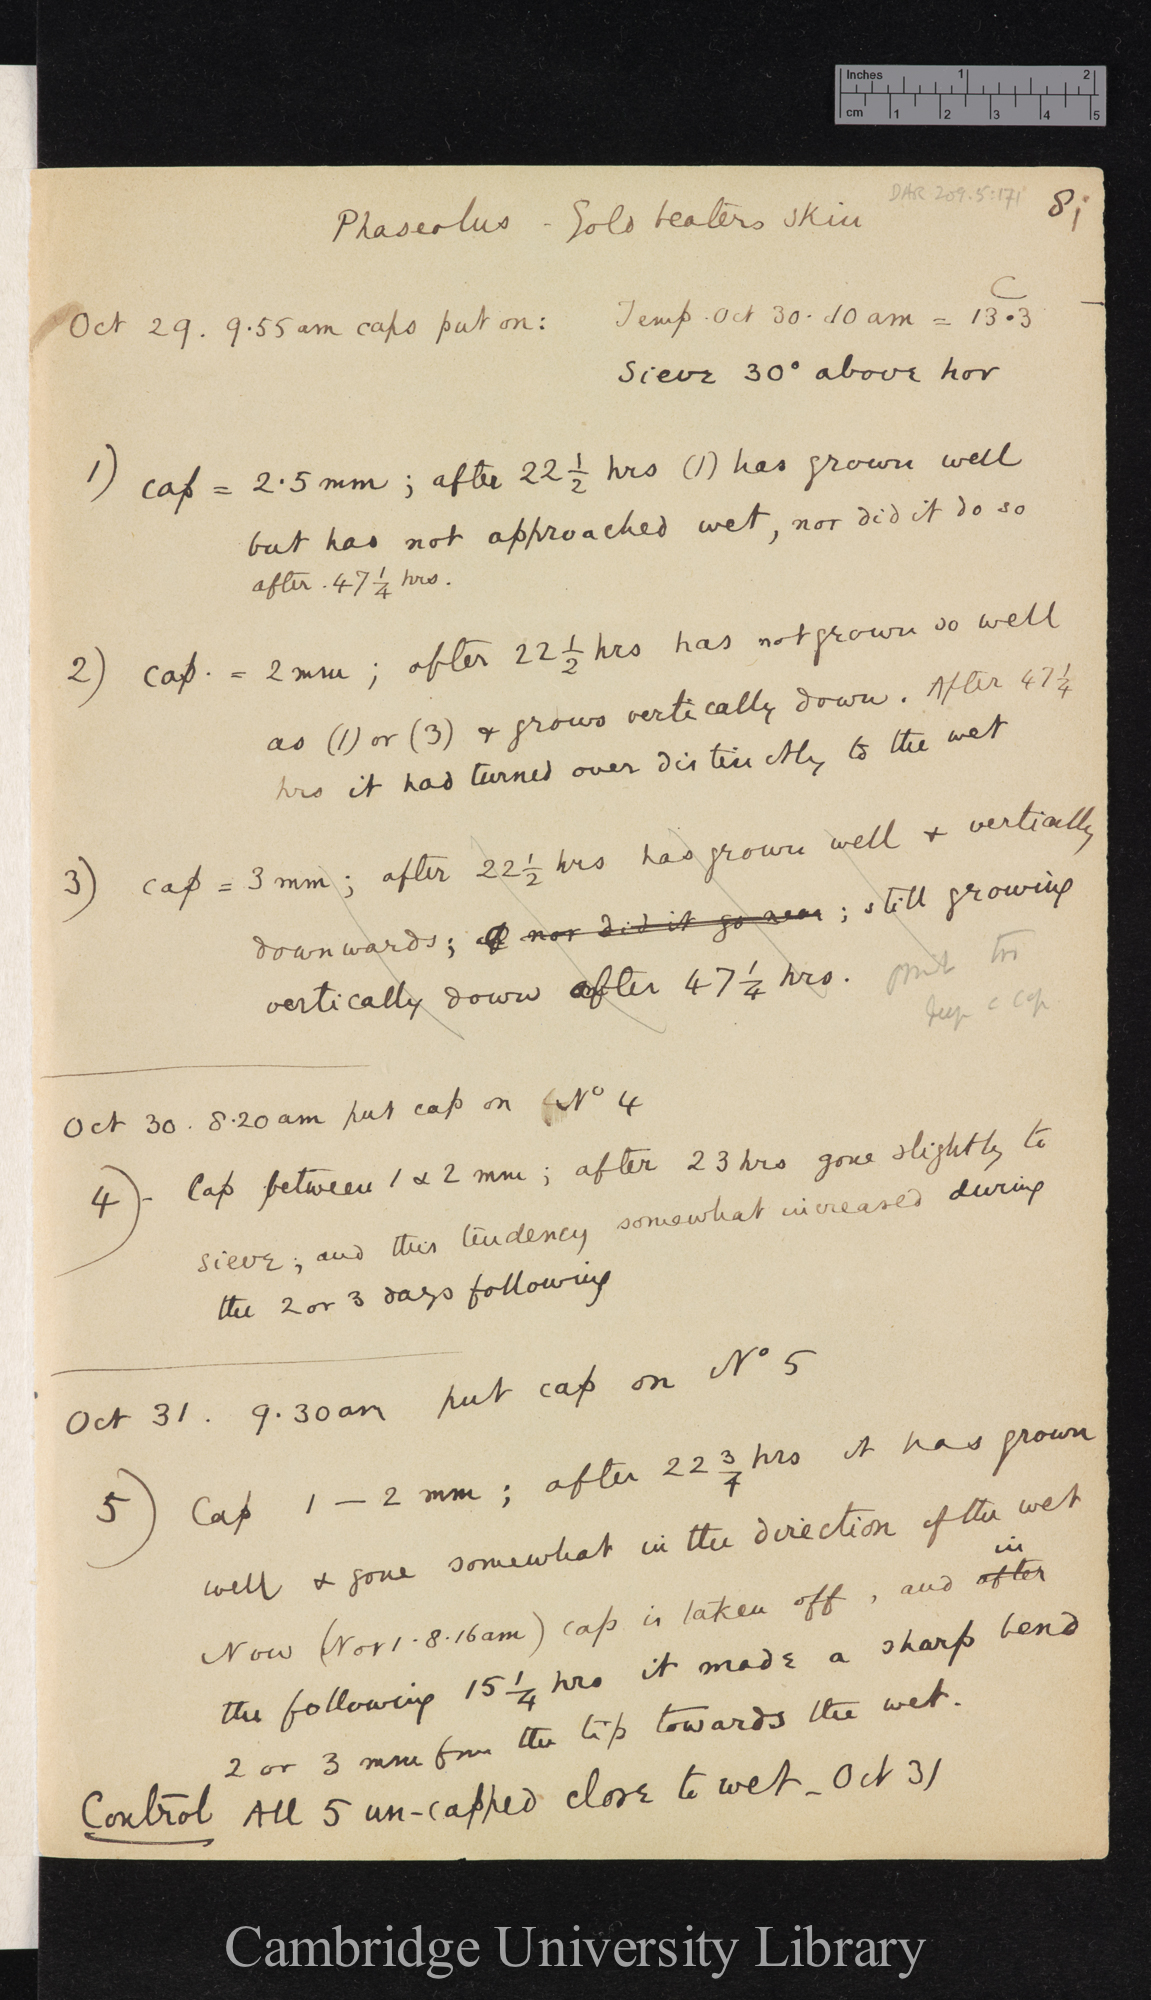 Inches 1 2
cm 1 2 3 4 5
DAR 209.5:171
8j
Phaseolus - Gold beaters skin
Oct 29. 9.55 am caps put on: Temp. Oct 30. 10 am = 13.3 C
Sieve 30° above hor
1) cap = 2.5 mm; after 22 1/2 hrs (1) has grown well
but has not approached wet, nor did it do so
after 47 1/4 hrs.
2) cap. = 2 mm; after 22 1/2 hrs has not grown so well
as (1) or (3) & grows vertically down. After 47 1/4
hrs it had turned over distinctly to the wet
3) cap = 3 mm; after 22 1/2 hrs has grown well & vertically
downwards; nor did it go near; still growing
vertically down after 47 1/4 hrs.
Oct 30. 8.20 am put cap on No 4
4) - Cap between 1 & 2 mm; after 23 hrs gone slightly to
sieve; and this tendency somewhat increased during
the 2 or 3 days following
Oct 31. 9.30 am put cap on No 5
5) Cap 1 — 2 mm; after 22 3/4 hrs it has grown
well & gone somewhat in the direction of the wet
Now (Nov 1. 8.16 am) cap is taken off, and after in
the following 15 1/4 hrs it made a sharp bend
2 or 3 mm from the tip towards the wet.
Control All 5 un-capped close to wet - Oct 31
Cambridge University Library